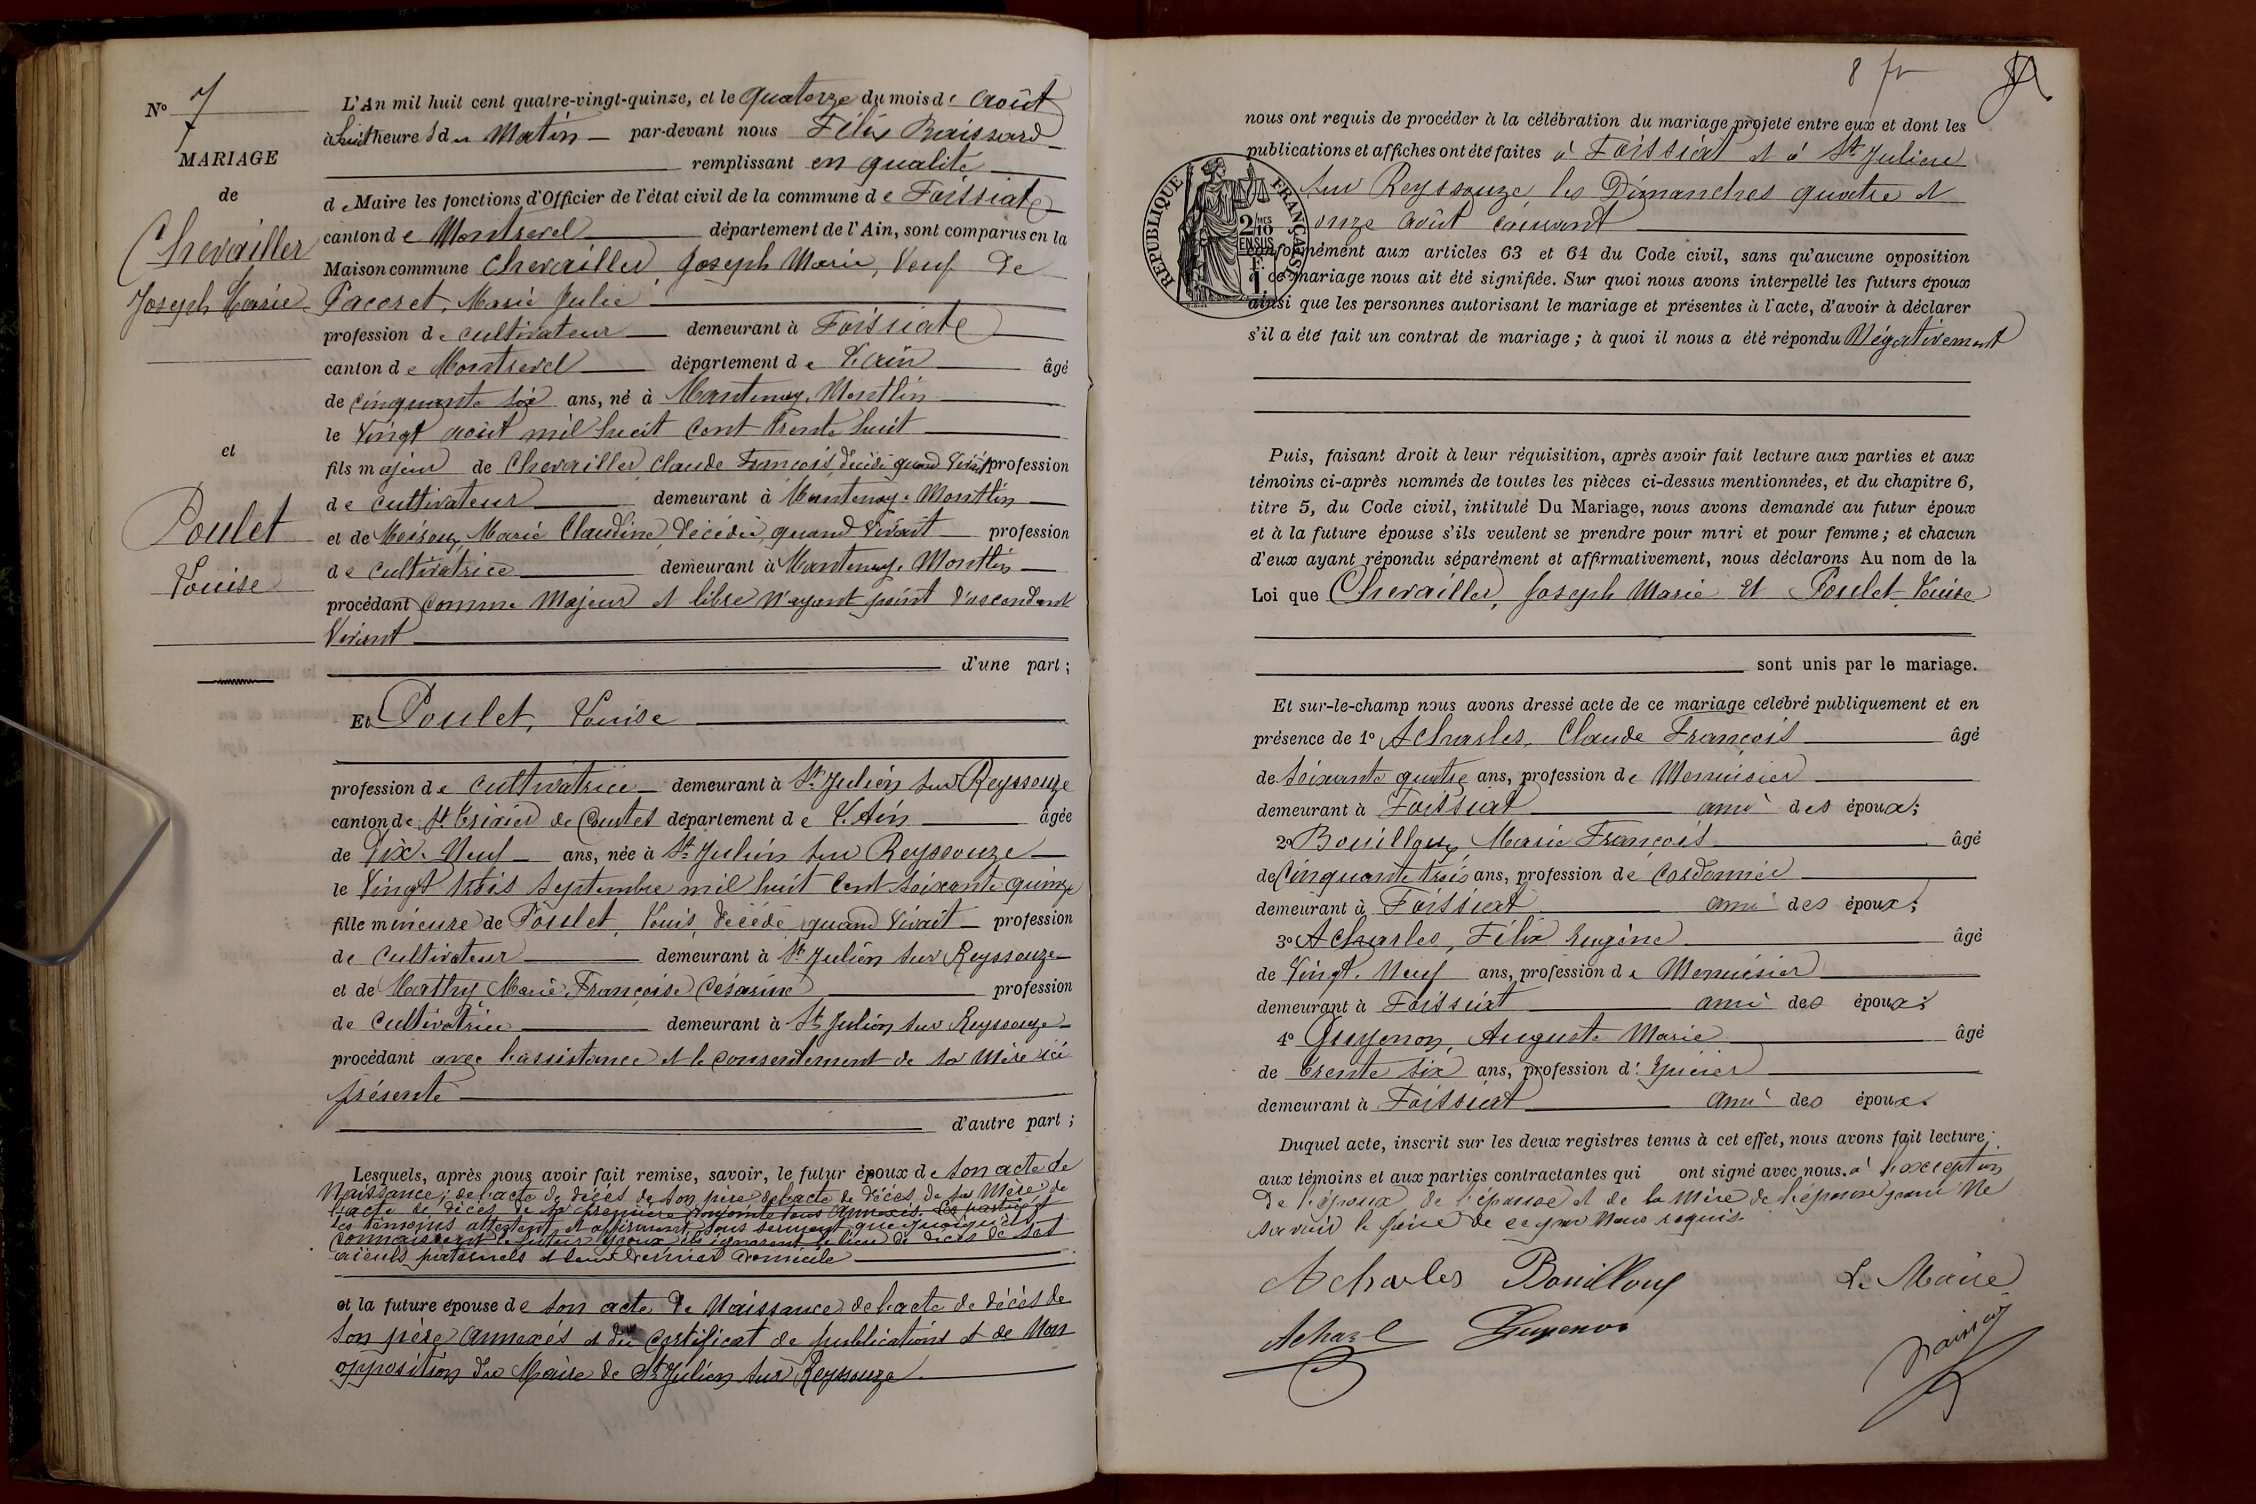 N° 7
MARIAGE
de
Chevailler
Joseph Marie
et
Poulet
Louise
L'An mil huit cent quatre-vingt-quinze, et le quatorze du mois de août
à huit heures du Matin par-devant nous Félix
remplissant en qualité
de Maire les fonctions d'Officier de l'état civil de la commune de Foissiat
canton de Montrevel département de l'Ain, sont comparus en la
Maison commune Chevailler Joseph Marie, Veuf de
Pacoret, Marie Julie
profession de cultivateur demeurant à Foissiat
canton de Montrevel département de L'ain âgé
de cinquante six ans, né à Mantenay-Montlin
le Vingt août mil huit cent trente huit
fils majeur de Chevailler Claude François, décédé quand vivait profession
de cultivateur demeurant à Mantenay-Montlin
et de Marie Claudine décédée quand vivait profession
de cultivatrice demeurant à Mantenay-Montlin
procédant comme Majeur et libre n'ayant point d'ascendant
Vivant
d'une part;
Et Poulet, Louise
profession de cultivatrice demeurant à St Julien sur Reyssouze
canton de St Trivier de Courtes département de L'Ain âgée
de Dix-Neuf ans, née à St Julien sur Reyssouze
le Vingt trois Septembre mil huit cent soixante quinze
fille mineure de Poulet, Louis, décédé quand vivait profession
de cultivateur demeurant à St Julien sur Reyssouze
et de Mathy Marie Françoise Césarine profession
de cultivatrice demeurant à St Julien sur Reyssouze
procédant avec l'assistance et le consentement de sa Mère ici
présente
d'autre part;
Lesquels, après nous avoir fait remise, savoir, le futur époux de son acte de
Naissance; de l'acte de décès de son père de l'acte de décès de sa Mère de
l'acte de décès de sa première conjointe tous annexés. Les parties et
les témoins attestent et affirment sous serment que quoiqu'ils
connaissent le futur époux ils ignorent le lieu de décès de ses
aïeuls paternels et leur dernier domicile
et la future épouse de son acte de Naissance de l'acte de décès de
son père annexés et du certificat de publications et de Non
opposition du Maire de St Julien sur Reyssouze.
8 fr
nous ont requis de procéder à la célébration du mariage projeté entre eux et dont les
publications et affiches ont été faites à Foissiat et à St Julien
sur Reyssouze les Dimanches quatre et
onze août courant
RÉPUBLIQUE FRANÇAISE
2/10MES
EN SUS
1F.
conformément aux articles 63 et 64 du Code civil, sans qu'aucune opposition
à ce mariage nous ait été signifiée. Sur quoi nous avons interpellé les futurs époux
ainsi que les personnes autorisant le mariage et présentes à l'acte, d'avoir à déclarer
s'il a été fait un contrat de mariage; à quoi il nous a été répondu Négativement
Puis, faisant droit à leur réquisition, après avoir fait lecture aux parties et aux
témoins ci-après nommés de toutes les pièces ci-dessus mentionnées, et du chapitre 6,
titre 5, du Code civil, intitulé Du Mariage, nous avons demandé au futur époux
et à la future épouse s'ils veulent se prendre pour mari et pour femme; et chacun
d'eux ayant répondu séparément et affirmativement, nous déclarons Au nom de la
Loi que Chevailler, Joseph Marie Et Poulet Louise
sont unis par le mariage.
Et sur-le-champ nous avons dressé acte de ce mariage célébré publiquement et en
présence de 1° Acharles, Claude François âgé
de soixante quatre ans, profession de Menuisier
demeurant à Foissiat ami des époux;
2° Bouilloux Marie François âgé
de Cinquante trois ans, profession de cordonnier
demeurant à Foissiat ami des époux;
3° Acharles, Félix Eugène âgé
de Vingt-Neuf ans, profession de Menuisier
demeurant à Foissiat ami des époux;
4° Guyenon, Auguste Marie âgé
de trente six ans, profession d'Epicier
demeurant à Foissiat ami des époux.
Duquel acte, inscrit sur les deux registres tenus à cet effet, nous avons fait lecture
aux témoins et aux parties contractantes qui ont signé avec nous. à l'exception
de l'époux, de l'épouse et de la mère de l'épouse pour Ne
savoir le faire de ce par Nous requis.
Acharles Bouilloux Le Maire
Guyenon